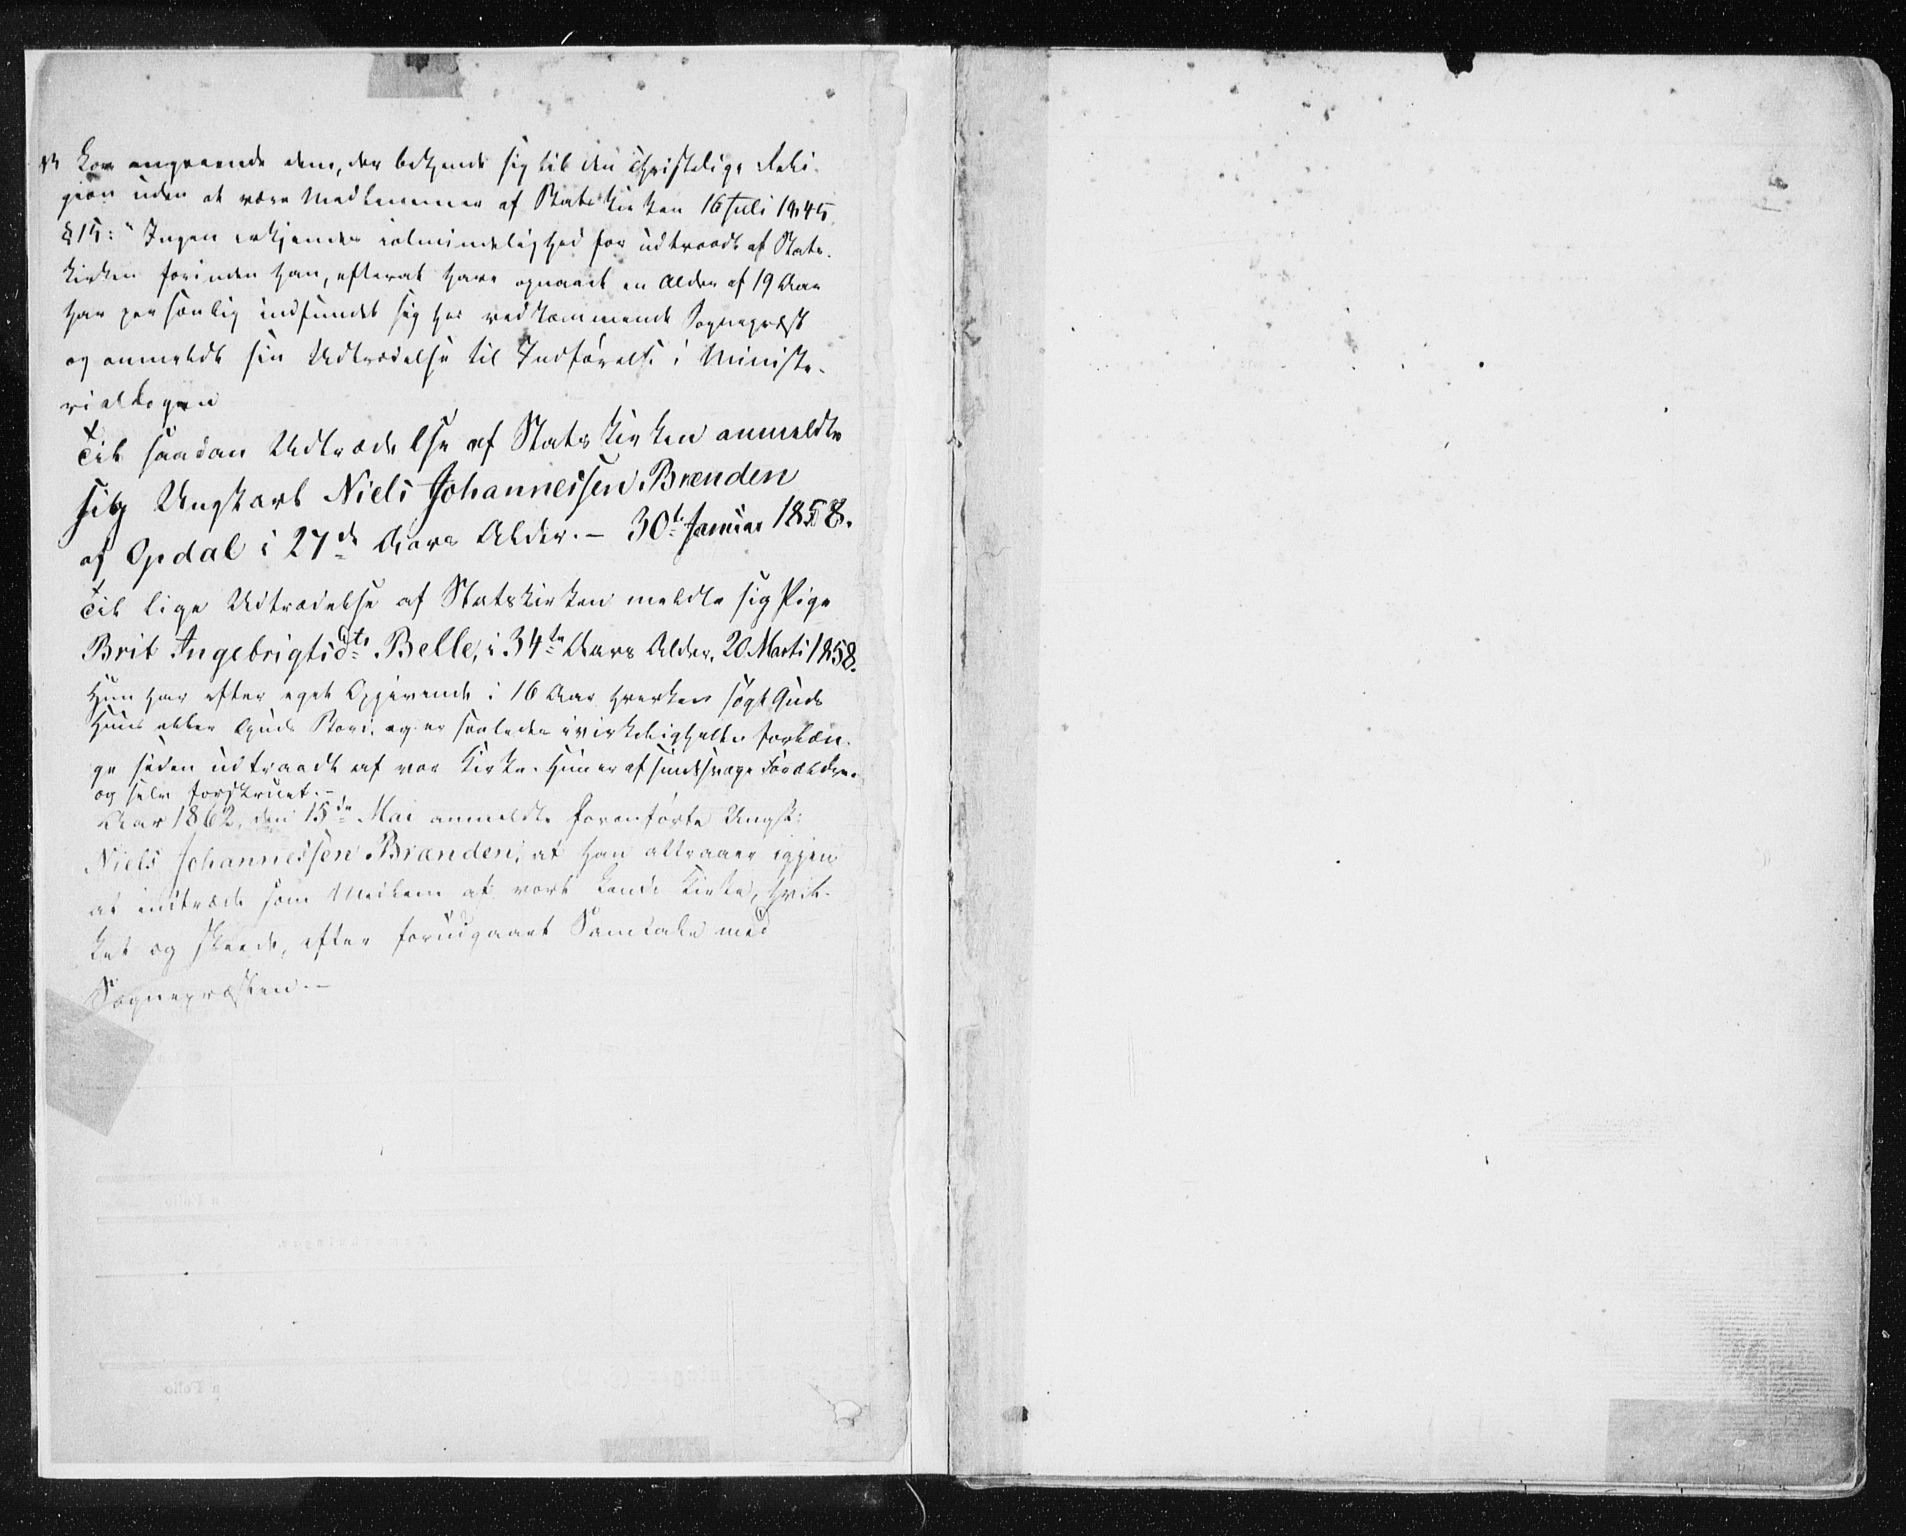 Lov angaaende dem, der bekjende sig til den christelige Reli-
gion uden at være Medlemmer af Statskirken 16 Juli 1845
§ 15: "Ingen erkjendes i almindelighed for udtraadt af Stats-
kirken forinden han, efterat have opnaaet en Alder af 19 Aar
har personlig indfundet sig hos vedkommende Sognepræst
og anmeldt sin Udtrædelse til Indførelse i Ministe-
rialbogen
Til saadan Udtrædelse af Statskirken anmeldte
sig Ungkarl Niels Johannessen Brænden
af Opdal i 27de Aars Alder. – 30te Januar 1858.
Til lige Udtrædelse af Statskirken meldte sig Pige
Brit Ingebrigtsdtr Belle, i 34te Aars Alder, 20 Marts 1858.
Hun har efter eget Opgivende i 16 Aar hverken søgt Guds
Huus eller Guds Bord, og er saaledes i virkeligheden forlæn-
ge siden udtraadt af vor Kirke. Hun er af sindssvage Forældre
og selv forskruet. –
Aar 1862, den 15de Mai anmeldte foranførte Ungk:
Niels Johannessen Brænden, at han attraaer igjen
at indtræde som Medlem af vort Lands Kirke, hvil-
ket og skeede, efter forudgaaet Samtale med
Sognepræsten. –